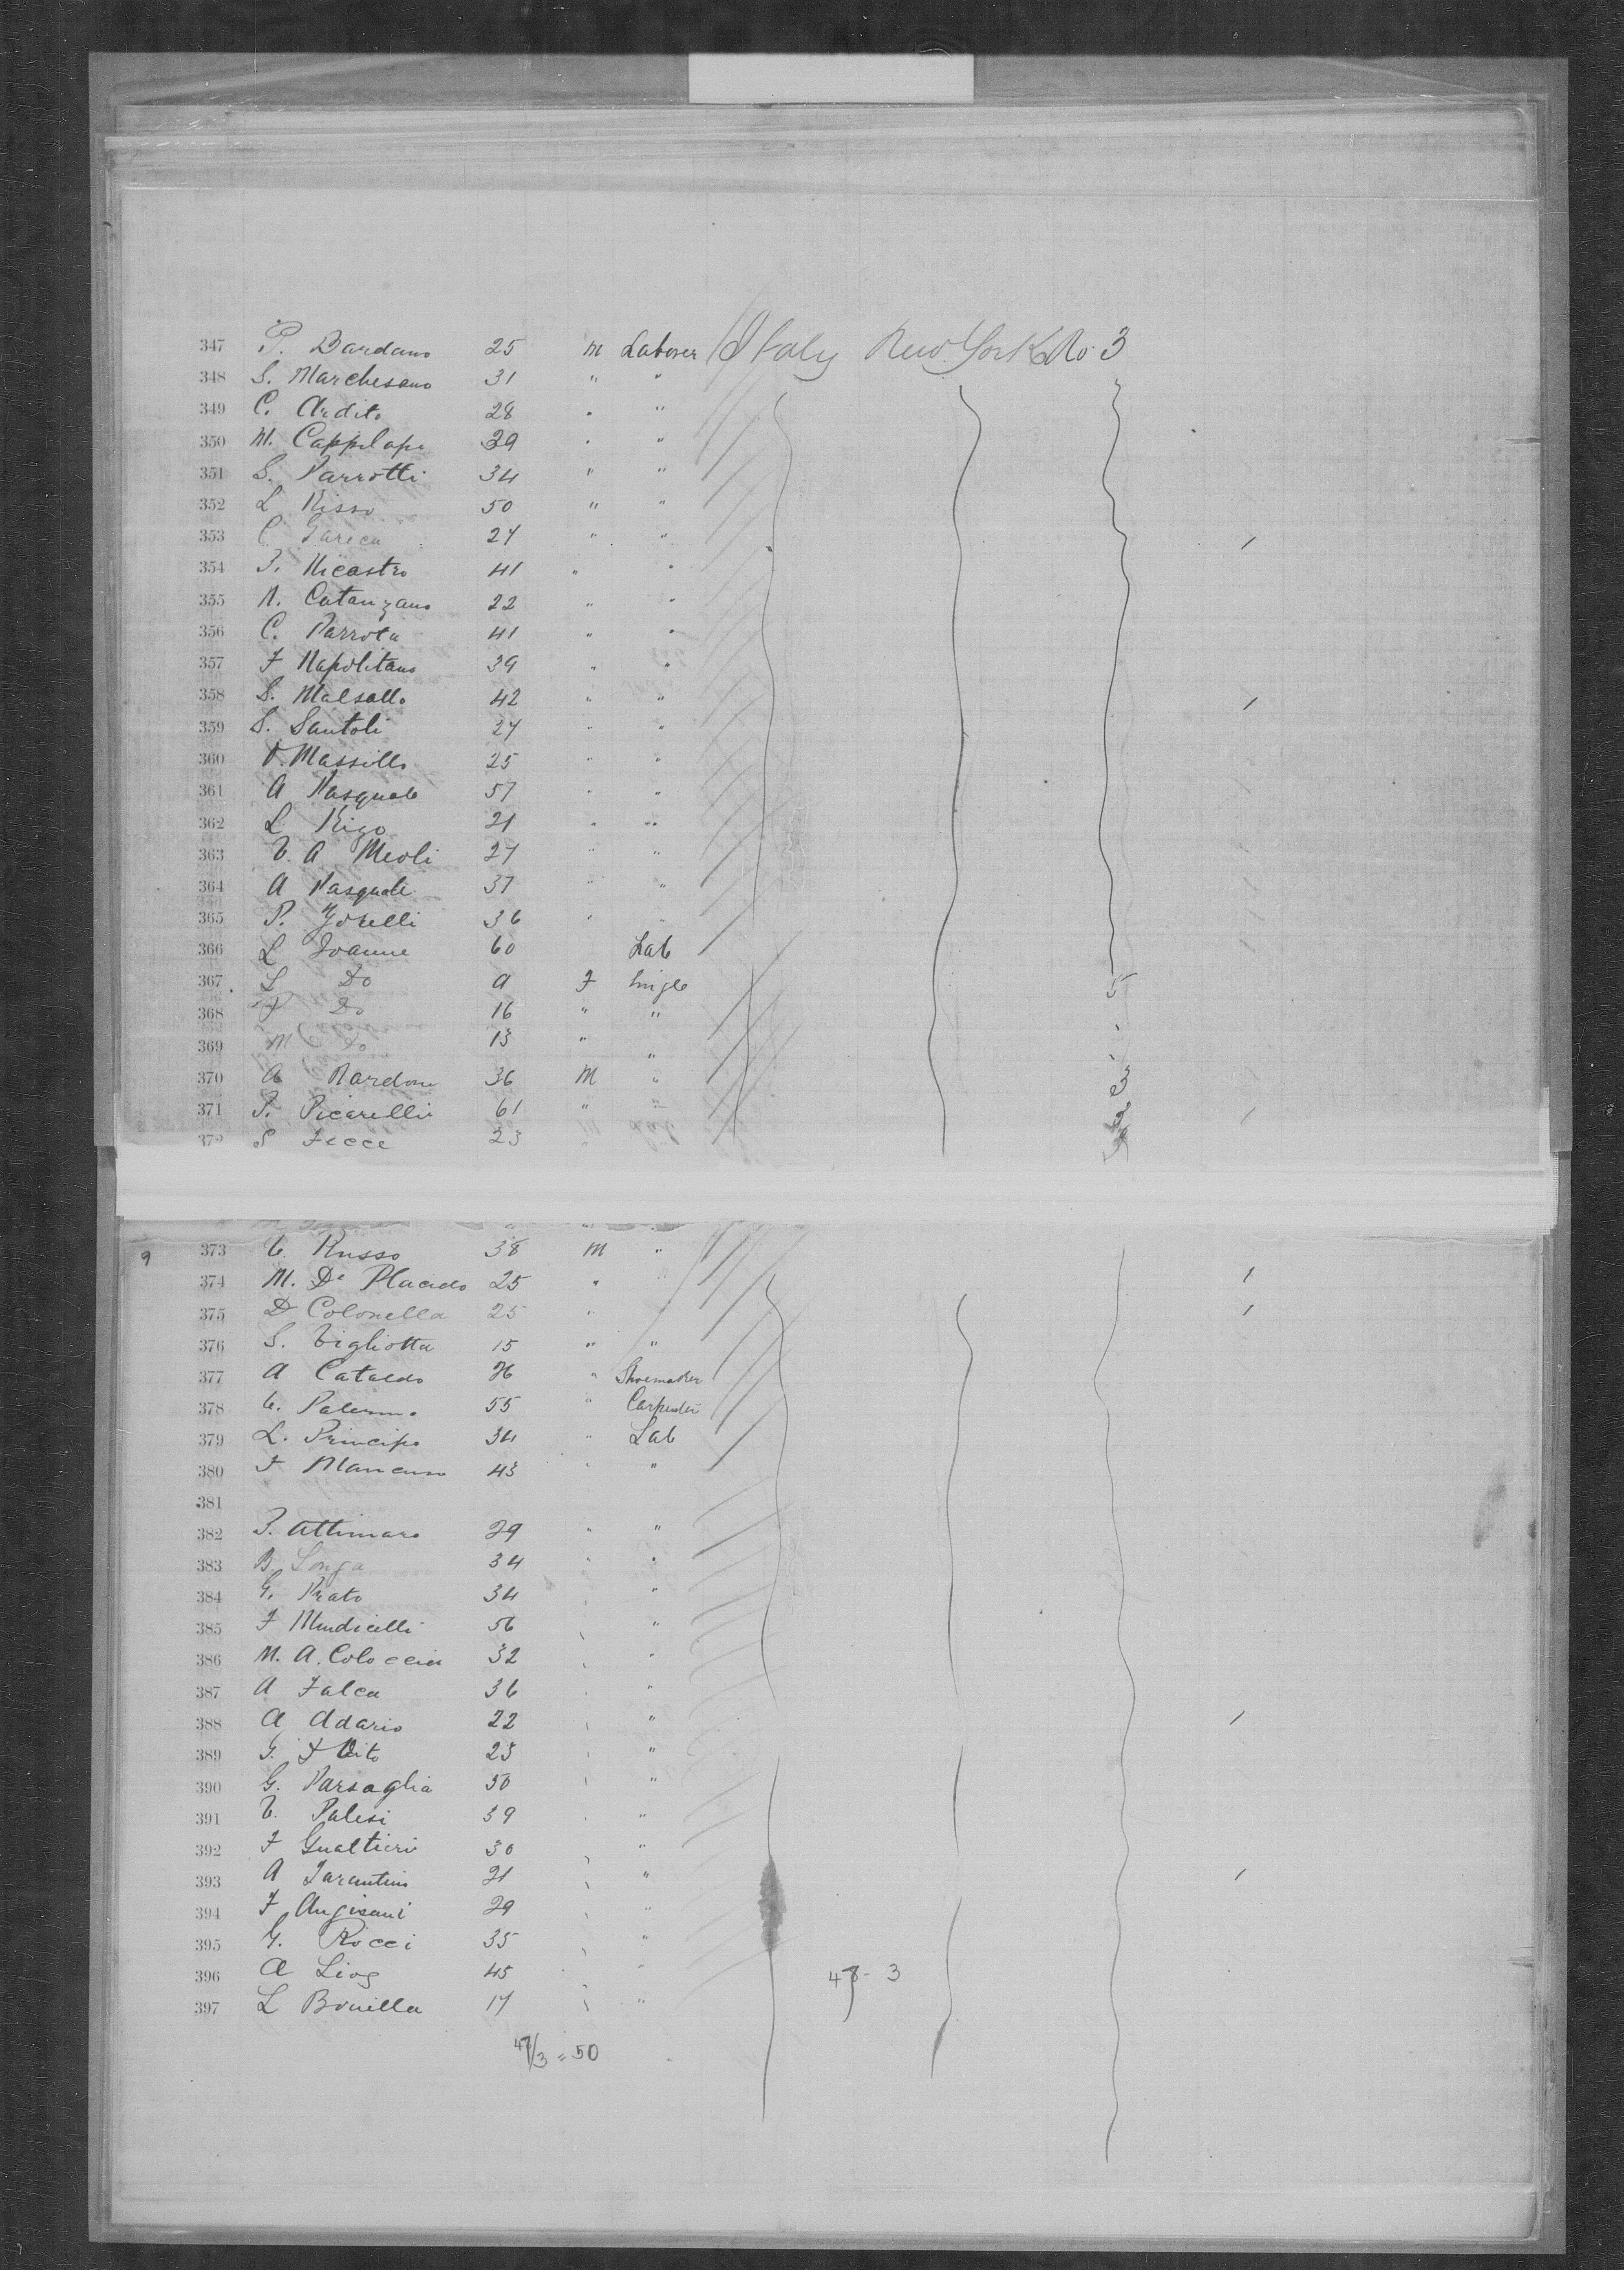 347 P. Bardano 25 m Laborer Italy New York No 3
348 S. Marchesano 31 " "
349 C. Ardito 28 " "
350 M. 39 " "
351 S. Parrotti 34 " "
352 L Risso 50 " "
353 C 27 " "
354 F. Nicastro 41 " "
355 N. Catanzano 22 " "
356 C. Parrota 41 " "
357 F Napolitano 39 " "
358 S. 42 " "
359 S. Santoli 27 " "
360 V. Massillo 25 " "
361 A Pasquale 57 " "
362 L 21 " "
363 V. A Meoli 27 " "
364 A Pasquale 37 " "
365 P. 36 " "
366 L Joanne 60 Lab
367 L Do 9 F Single 5
368 F Do 16 " "
369 M Do 13 " "
370 A Nardone 36 M " 3
371 P. Picarelli 61 " "
372 S 23
9 373 V. Russo 38 m "
374 M. De Placido 25 "
375 D Colonella 25 "
376 S. Vigliotta 15 " "
377 A Cataldo 26 " Shoemaker
378 V. Palermo 55 " Carpenter
379 L. Principe 34 " Lab
380 F Mancuso 43 " "
381
382 P. Attimaro 29 " "
383 B Longa 34 " "
384 G. Prato 34 "
385 F Mendicelli 56 "
386 M. A. Coloccia 32 "
387 A Falca 36 "
388 A Adario 22 "
389 G. F Vito 23 "
390 G. Parsaglia 50 "
391 V. Palesi 39 "
392 F Gualtieri 30 "
393 A Tarantino 21 "
394 F Angisani 29 "
395 G. Rocci 35 "
396 A 45 "
397 L Bonilla 17 "
47/3 = 50
47 - 3